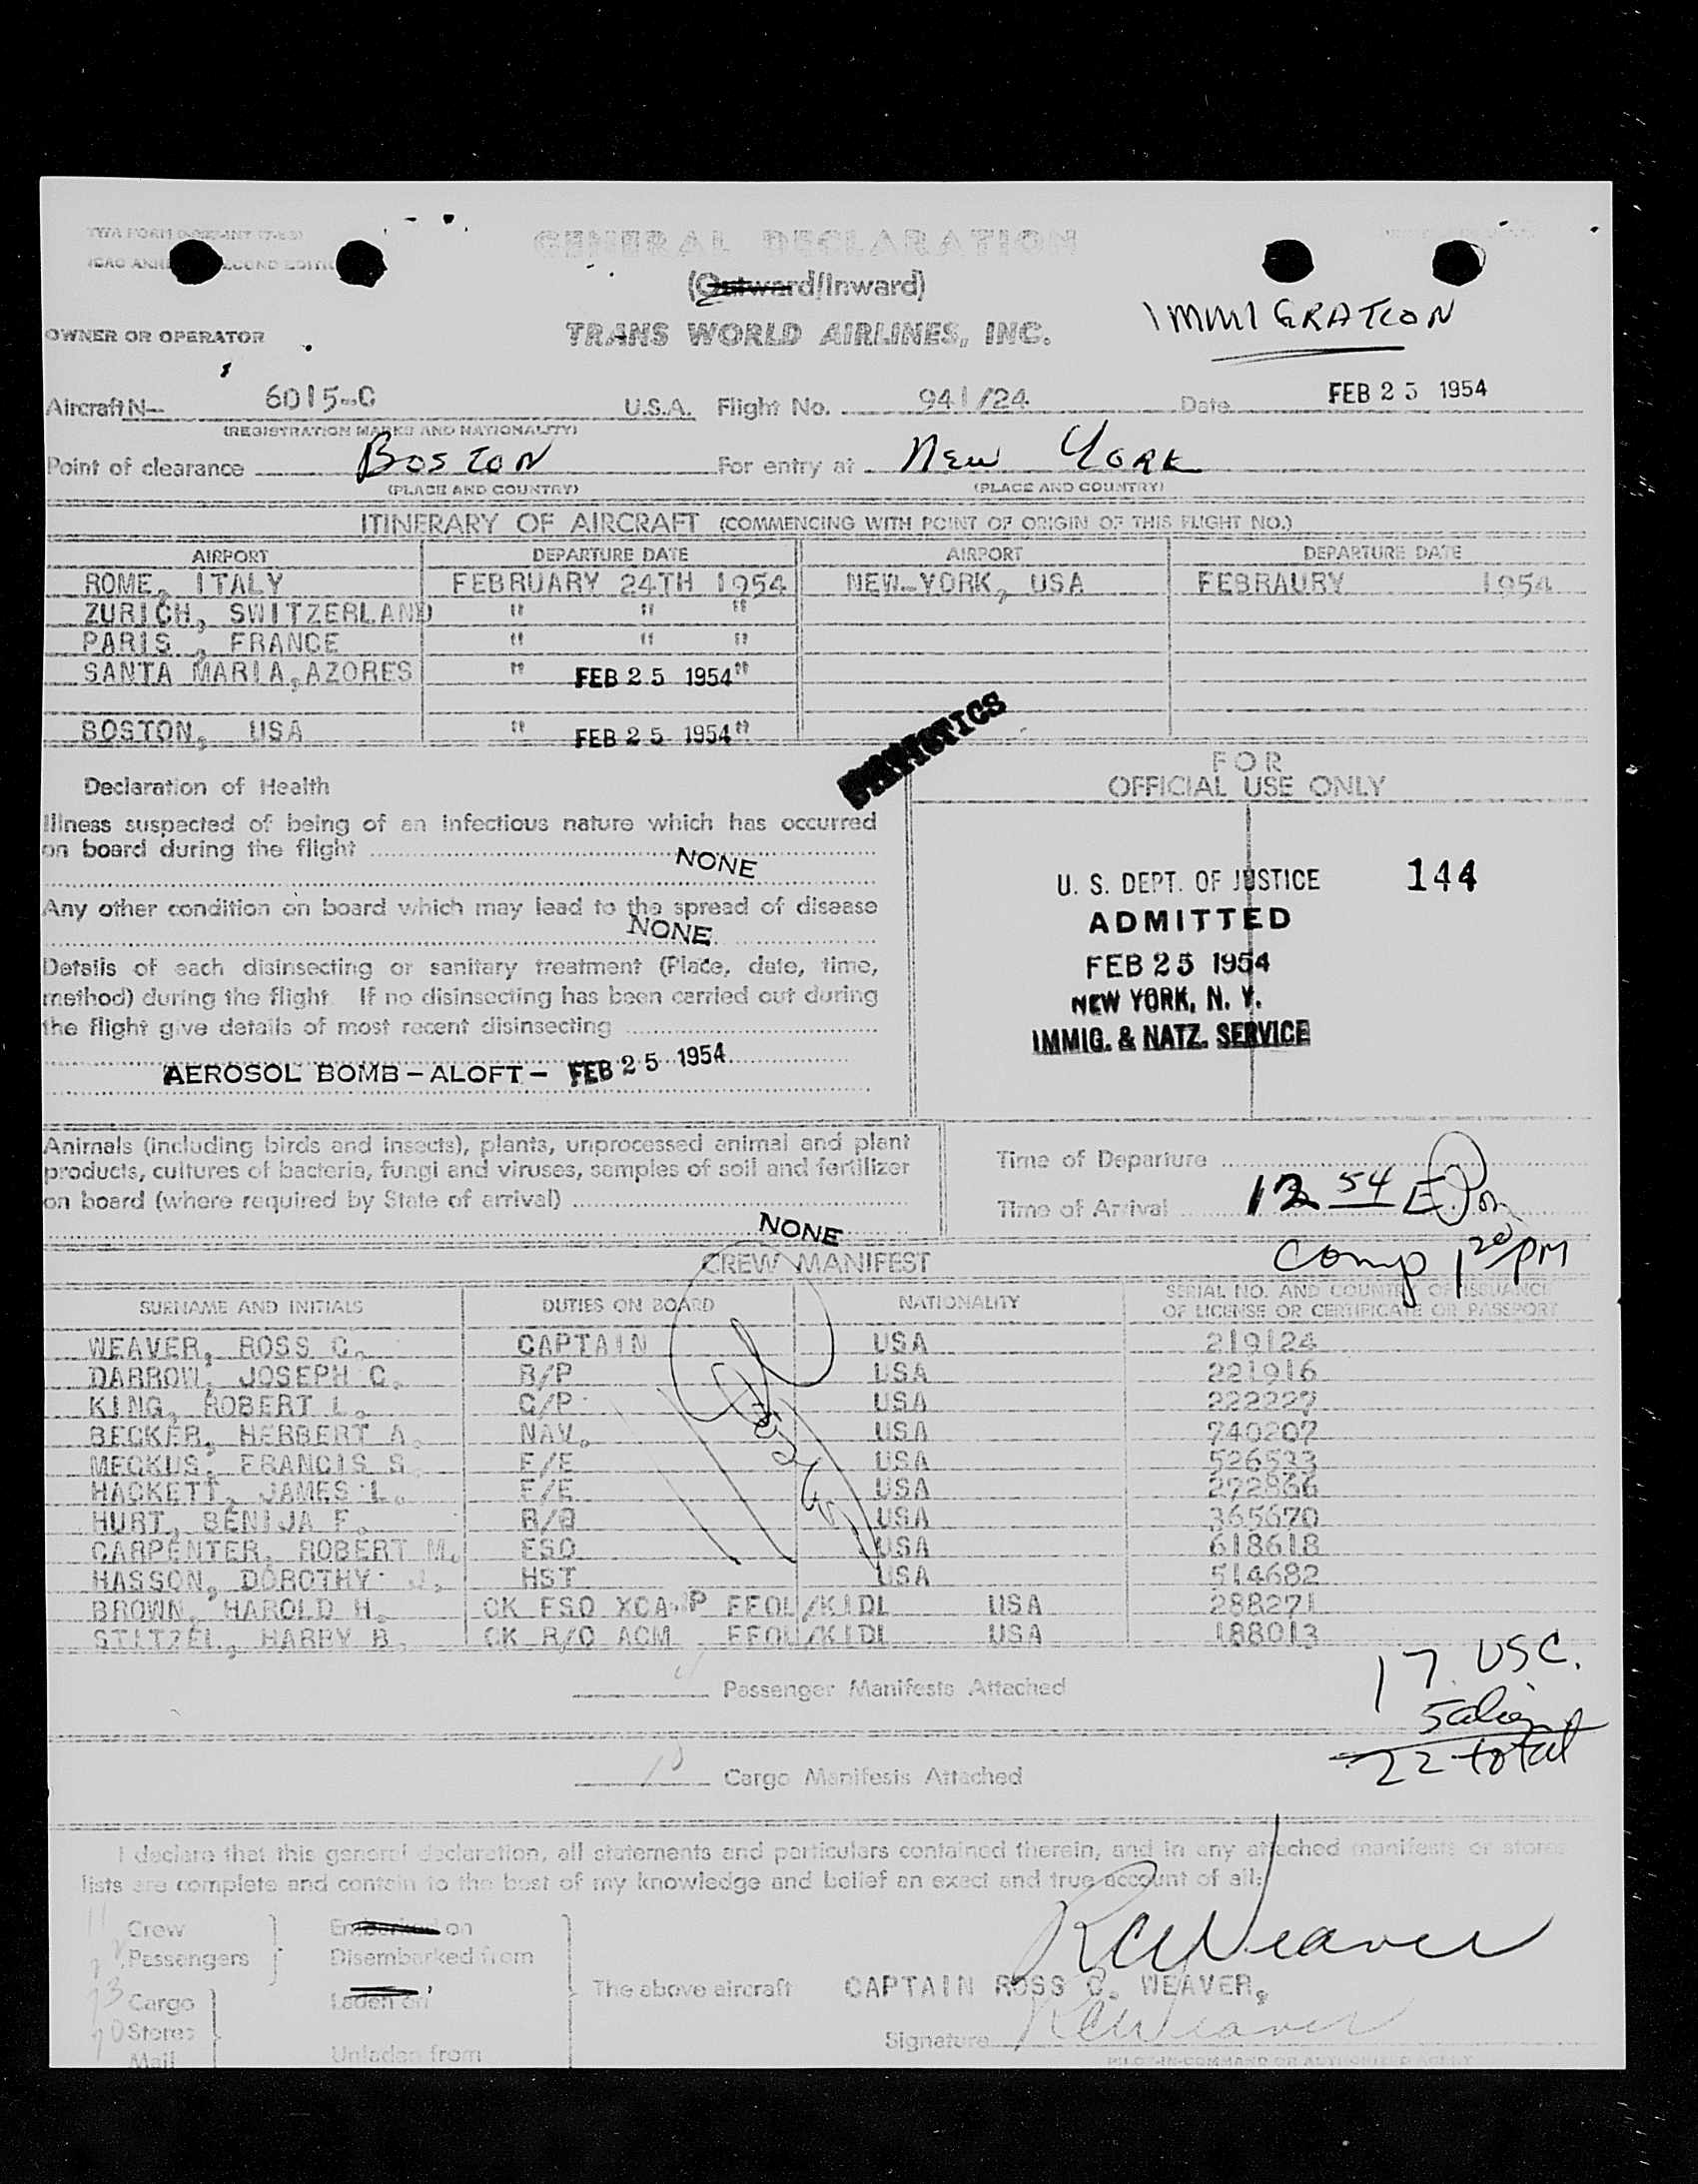 GENERAL DECLARATION
(Outward/Inward)
IMMIGRATION
OWNER OR OPERATOR TRANS WORLD AIRLINES, INC.
Aircraft N- 6015-C U.S.A. Flight No. 941/24 Date FEB 25 1954
(REGISTRATION MARKS AND NATIONALITY)
Point of clearance BOSTON For entry at NEW YORK
(PLACE AND COUNTRY) (PLACE AND COUNTRY)
ITINERARY OF AIRCRAFT (COMMENCING WITH POINT OF ORIGIN OF THIS FLIGHT NO.)
AIRPORT DEPARTURE DATE AIRPORT DEPARTURE DATE
ROME, ITALY FEBRUARY 24TH 1954 NEW-YORK, USA FEBRAURY 1954
ZURICH, SWITZERLAND " " "
PARIS , FRANCE " " "
SANTA MARIA,AZORES " FEB 25 1954"
BOSTON, USA " FEB 25 1954"
STATISTICS
FOR
OFFICIAL USE ONLY
Declaration of Health
Illness suspected of being of an infectious nature which has occurred
on board during the flight
NONE
Any other condition on board which may lead to the spread of disease
NONE
Details of each disinsecting or sanitary treatment (Place, date, time,
method) during the flight. If no disinsecting has been carried out during
the flight give details of most recent disinsecting
AEROSOL BOMB - ALOFT - FEB 25 1954
U. S. DEPT. OF JUSTICE 144
ADMITTED
FEB 25 1954
NEW YORK, N. Y.
IMMIG. & NATZ. SERVICE
Animals (including birds and insects), plants, unprocessed animal and plant
products, cultures of bacteria, fungi and viruses, samples of soil and fertilizer
on board (where required by State of arrival)
NONE
Time of Departure
Time of Arrival 12 54
Comp 1 20 PM
CREW MANIFEST
SURNAME AND INITIALS DUTIES ON BOARD NATIONALITY SERIAL NO. AND COUNTRY OF ISSUANCE
OF LICENSE OR CERTIFICATE OR PASSPORT
WEAVER, ROSS C. CAPTAIN USA 219124
DARROW, JOSEPH C. R/P USA 221916
KING, ROBERT L. C/P USA 222227
BECKER, HERBERT A. NAV. USA 740207
MECKUS, FRANCIS S. F/E USA 526533
HACKETT, JAMES L. F/E USA 272866
HURT, BENIJA F. R/O USA 365670
CARPENTER, ROBERT M. FSO USA 618618
HASSON, DOROTHY J. HST USA 514682
BROWN, HAROLD H. CK FSO XCA P EFOL/KIDL USA 288271
STITZEL, HARRY B. CK R/O ACM EFOL/KIDL USA 188013
Passenger Manifests Attached
17 USC.
5 alien
22 total
Cargo Manifests Attached
I declare that this general declaration, all statements and particulars contained therein, and in any attached manifests or stores
lists are complete and contain to the best of my knowledge and belief an exact and true account of all:
Crew
Passengers
Cargo
Stores
Mail
Embarked on
Disembarked from
Laden on
Unladen from
The above aircraft
R C Weaver
CAPTAIN ROSS C. WEAVER,
Signature R C Weaver
PILOT-IN-COMMAND OR AUTHORIZED AGENT